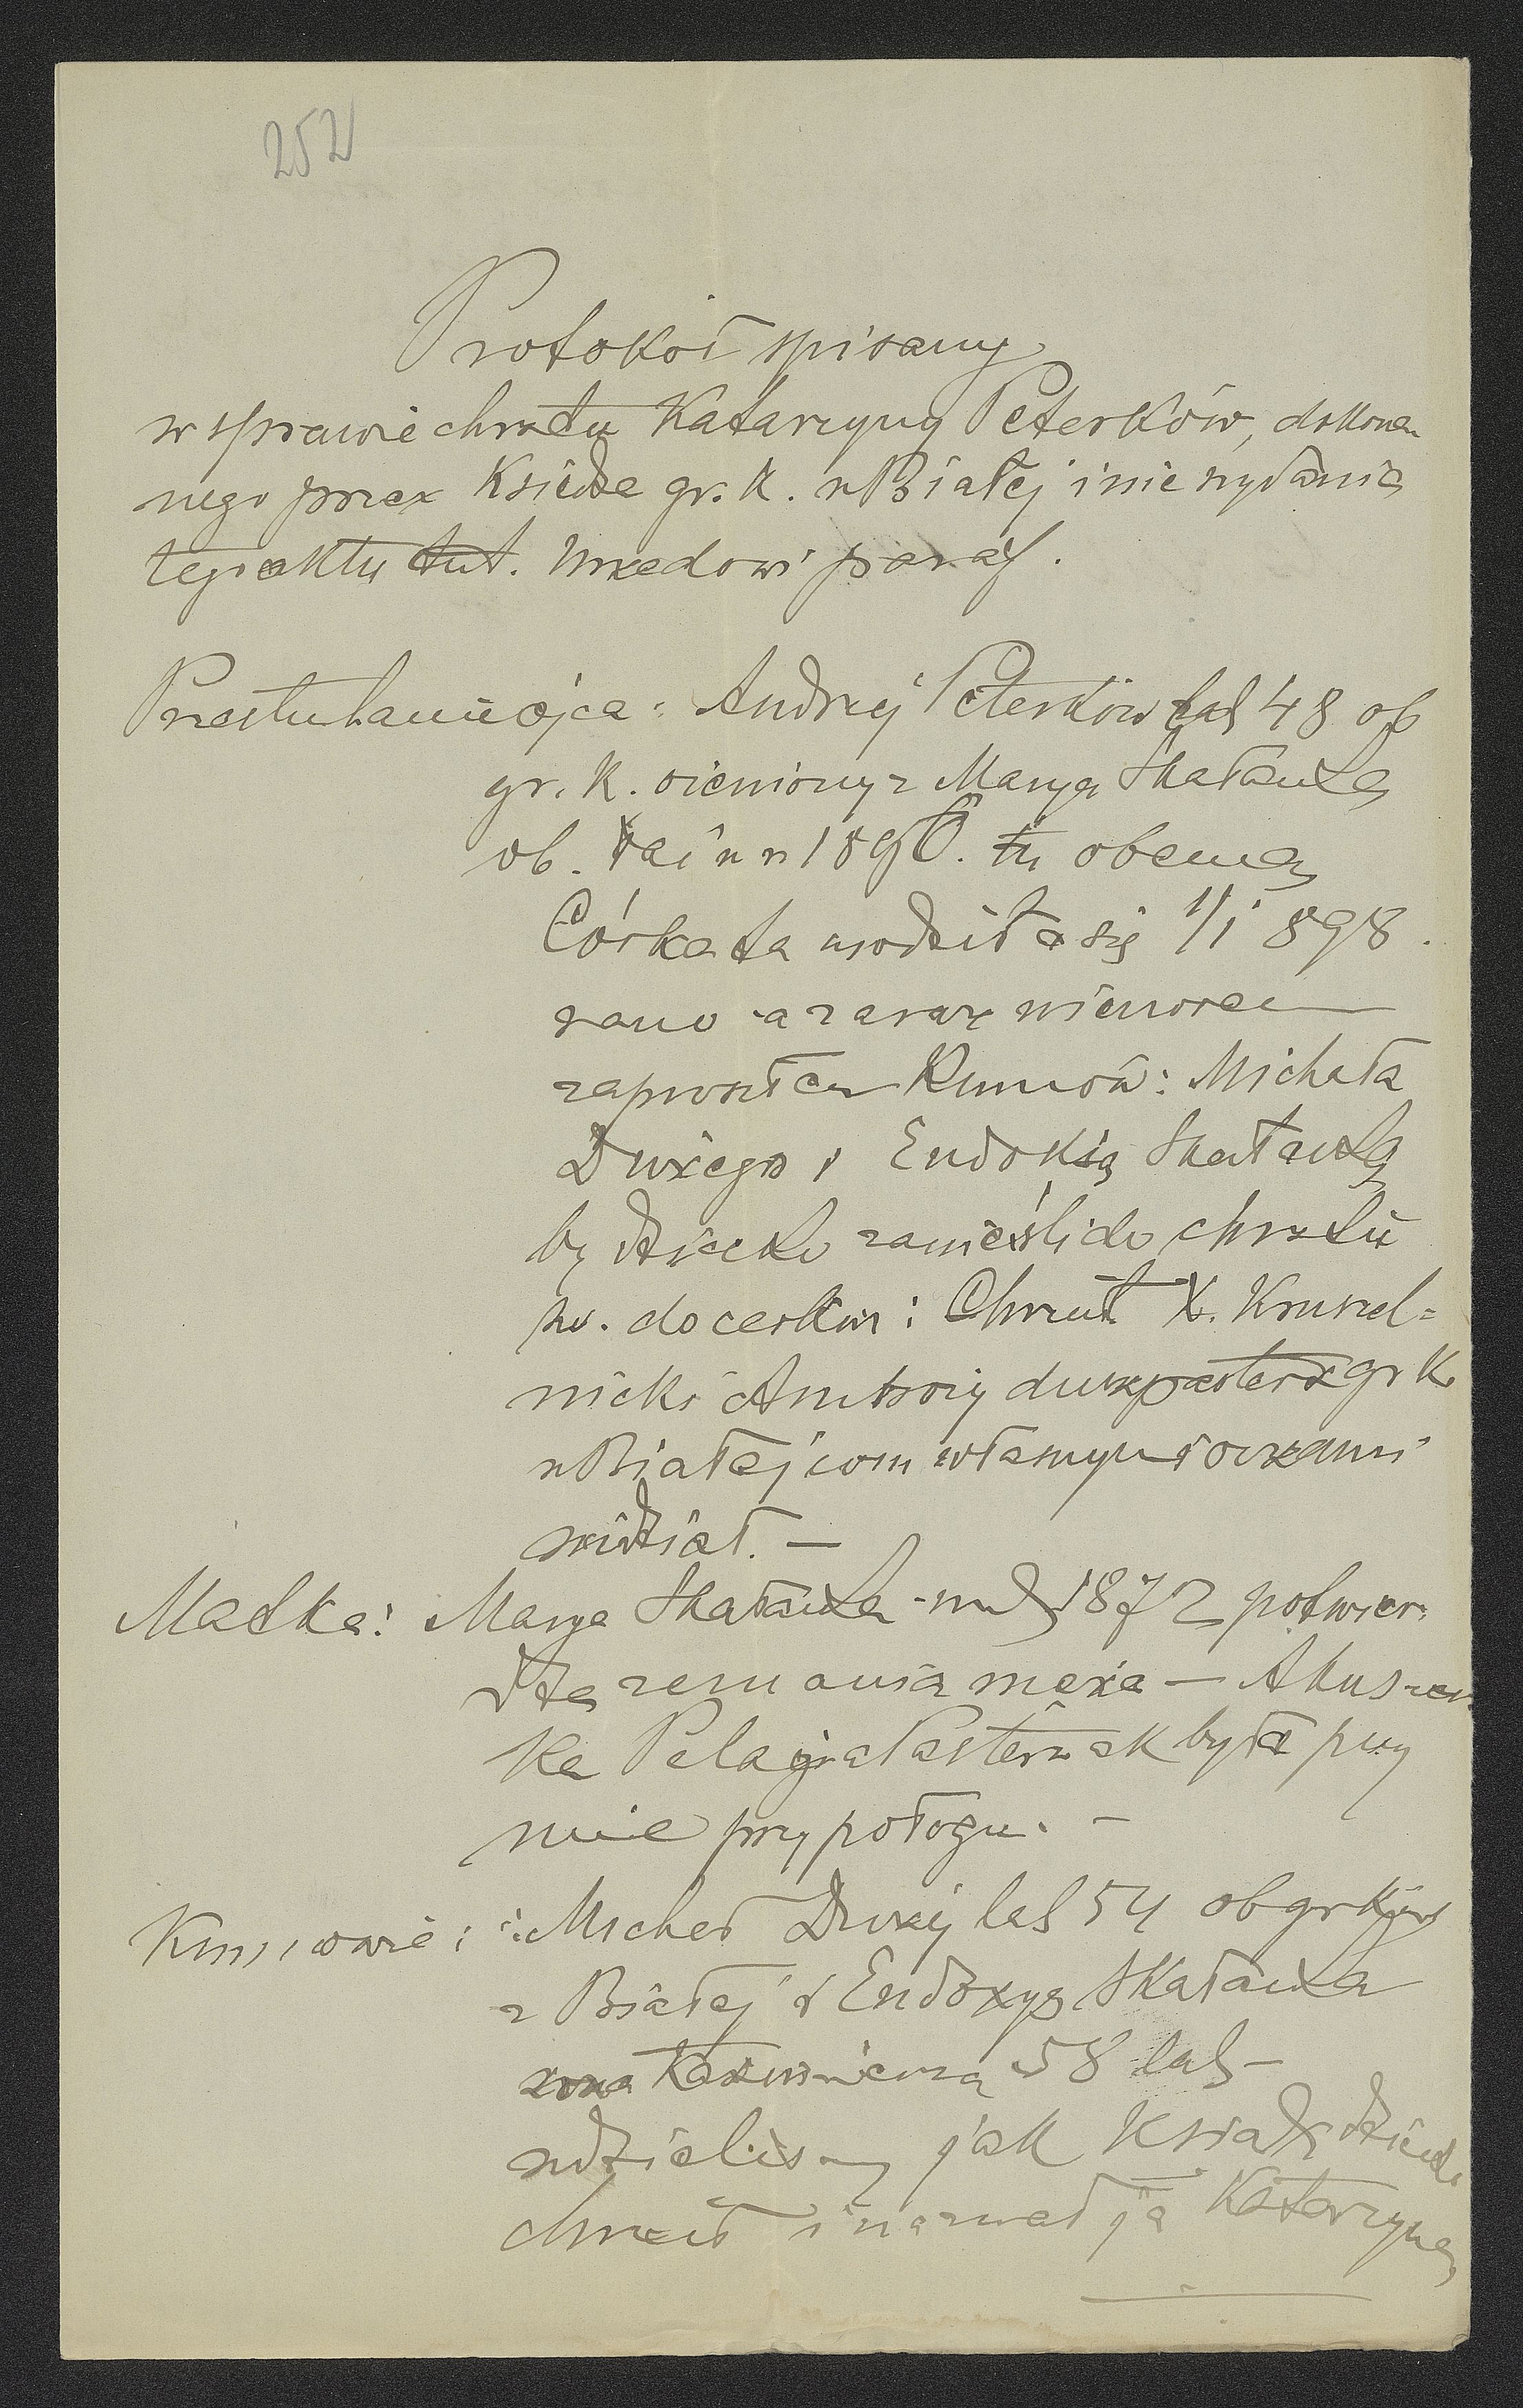 252
Protokół spisany
w sprawie chrztu Katarzyny Peterków, dokona-
nego przez Księdza gr. k. w Białej i nie wydania
tego aktu tut. Urzędowi paraf.
Przesłuchanie ojca: Andrzej Peterków lat 48 ob
gr. k. ożeniony z Maryą Skałauką
ob. łaciń w 1896. tu obecną
Córka ta urodziła się 1/1 898.
rano a zaraz wieczorem
zaprosiłem Kumów: Michała
Dużego i Eudoksią Skałauką
by dziecko zanieśli do chrztu
św. do cerkwi: Chrzcił X. Kruszel=
nicki Ambroży duszpasterz gr k
w Białej com własnymi oczami
widział. —
Matka: Marya Skałauka ur. 1872 potwier-
dza zeznania męża — Akuszer
ka Pelagia Pasternak była przy
mnie przy połogu. —
Kumowie: Michał Duży lat 54 ob gr kat
z Białej i Eudoxya Skałauka
58 lat —
widzieliśmy jak Ksiądz dziecko
chrzcił i nazwał ją Katarzyną